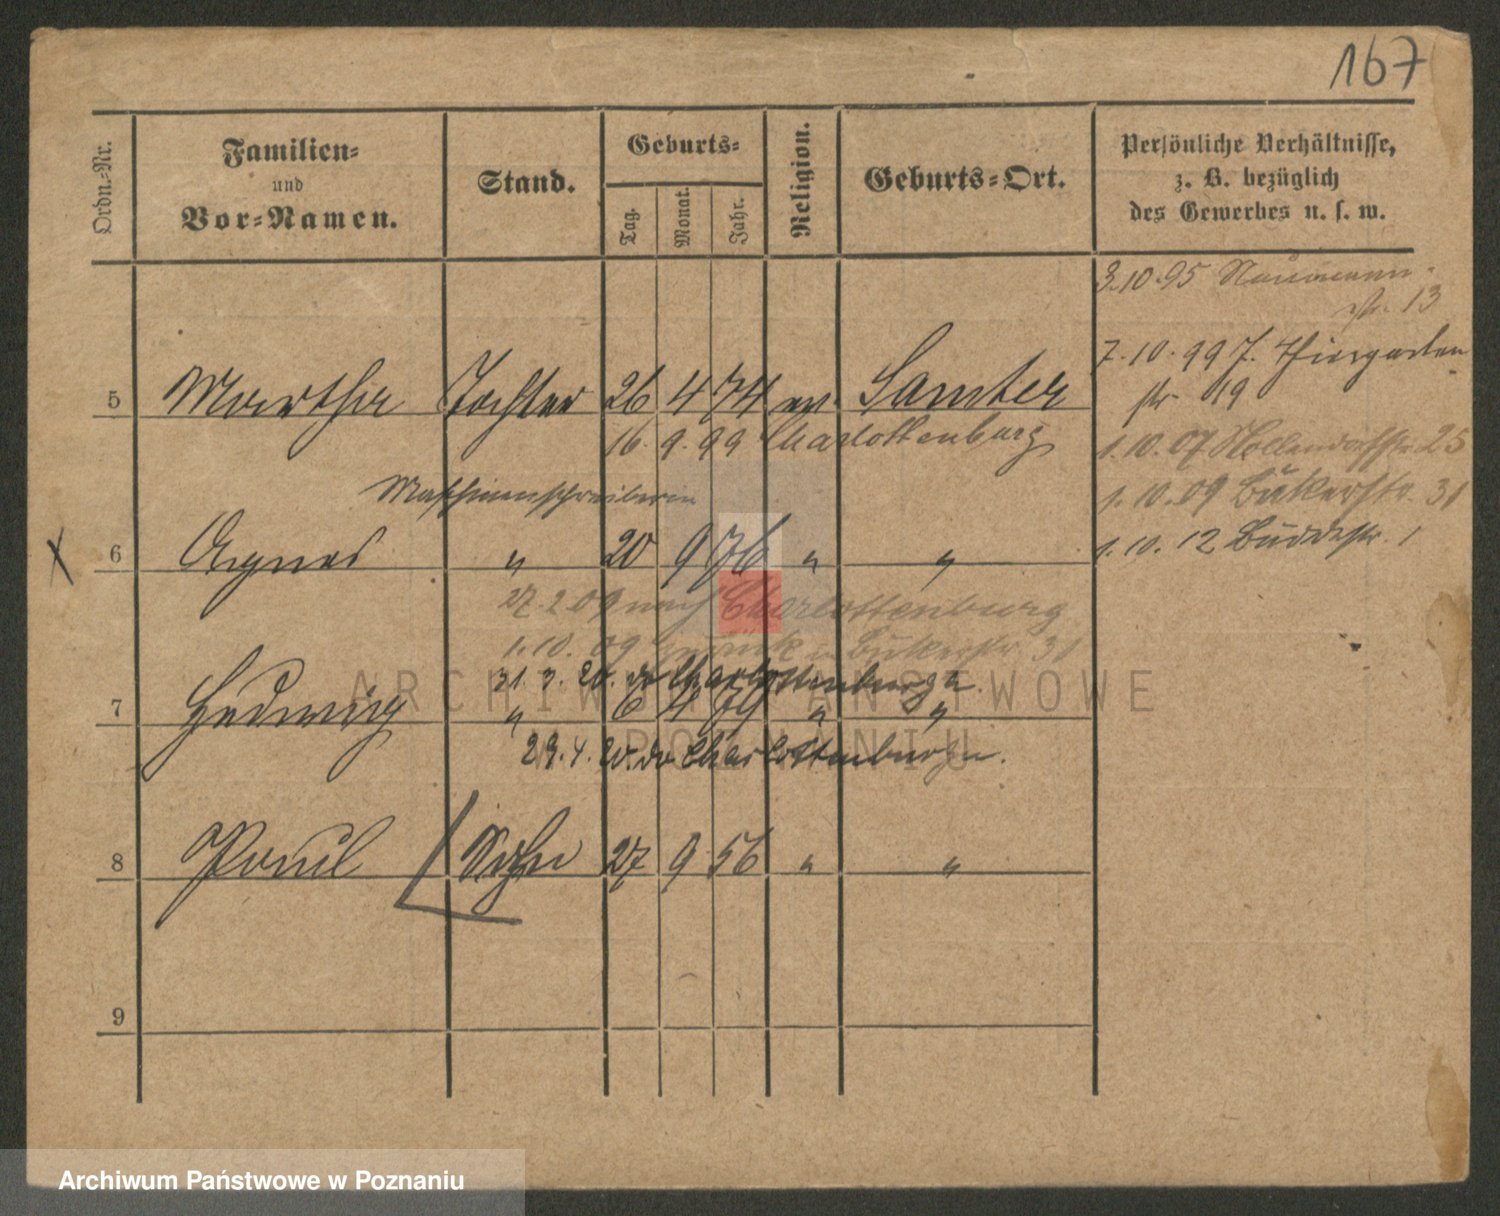 167
Ordn.-Nr.
Familien-
und
Vor-Namen.
Stand.
Geburts-
Tag.
Monat.
Jahr.
Religion.
Geburts-Ort.
Persönliche Verhältnisse,
z. B. bezüglich
des Gewerbes u. s. w.
3.10.95 Naumann-
str. 13
7.10.99 7. Thiergarten
str 19
5 Martha Tochter 26 4 74 ev. Samter
16. 9. 99 Charlottenburg
1.10.07 Nollendorfstr. 25
Maschinenschreiberin
1.10.09 Bukerstr. 31
x 6 Agnes " 20 9 76 " "
1.10.12 Buddestr. 1
27.2.09 nach Charlottenburg
1.10.09 zurück Bukerstr. 31
31.3.20. do Charlottenburg
7 Hedwig " 6 4 79 " "
29.4.20. do Charlottenburg
8 Paul Sohn 27 9 56 " "
9
ARCHIWUM PAŃSTWOWE
W POZNANIU
Archiwum Państwowe w Poznaniu